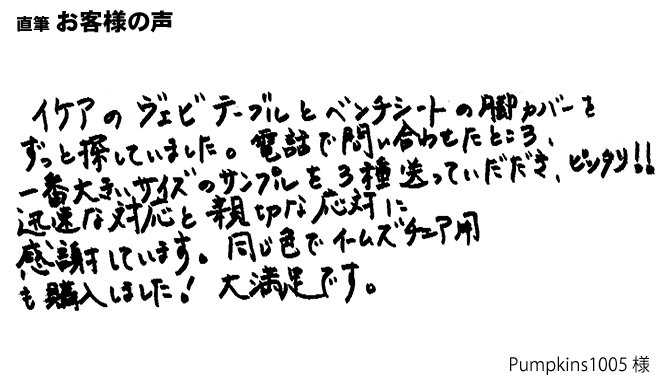 直筆 お客様の声
イケアの ヴェビテーブルとベンチシートの脚カバーを
ずっと探していました。電話で問い合わせたところ、
一番大きいサイズのサンプルを3種送っていただき、ピッタリ!!
迅速な対応と親切な応対に
感謝しています。同じ色でイームズチェア用
も購入しました! 大満足です。
Pumpkins1005 様